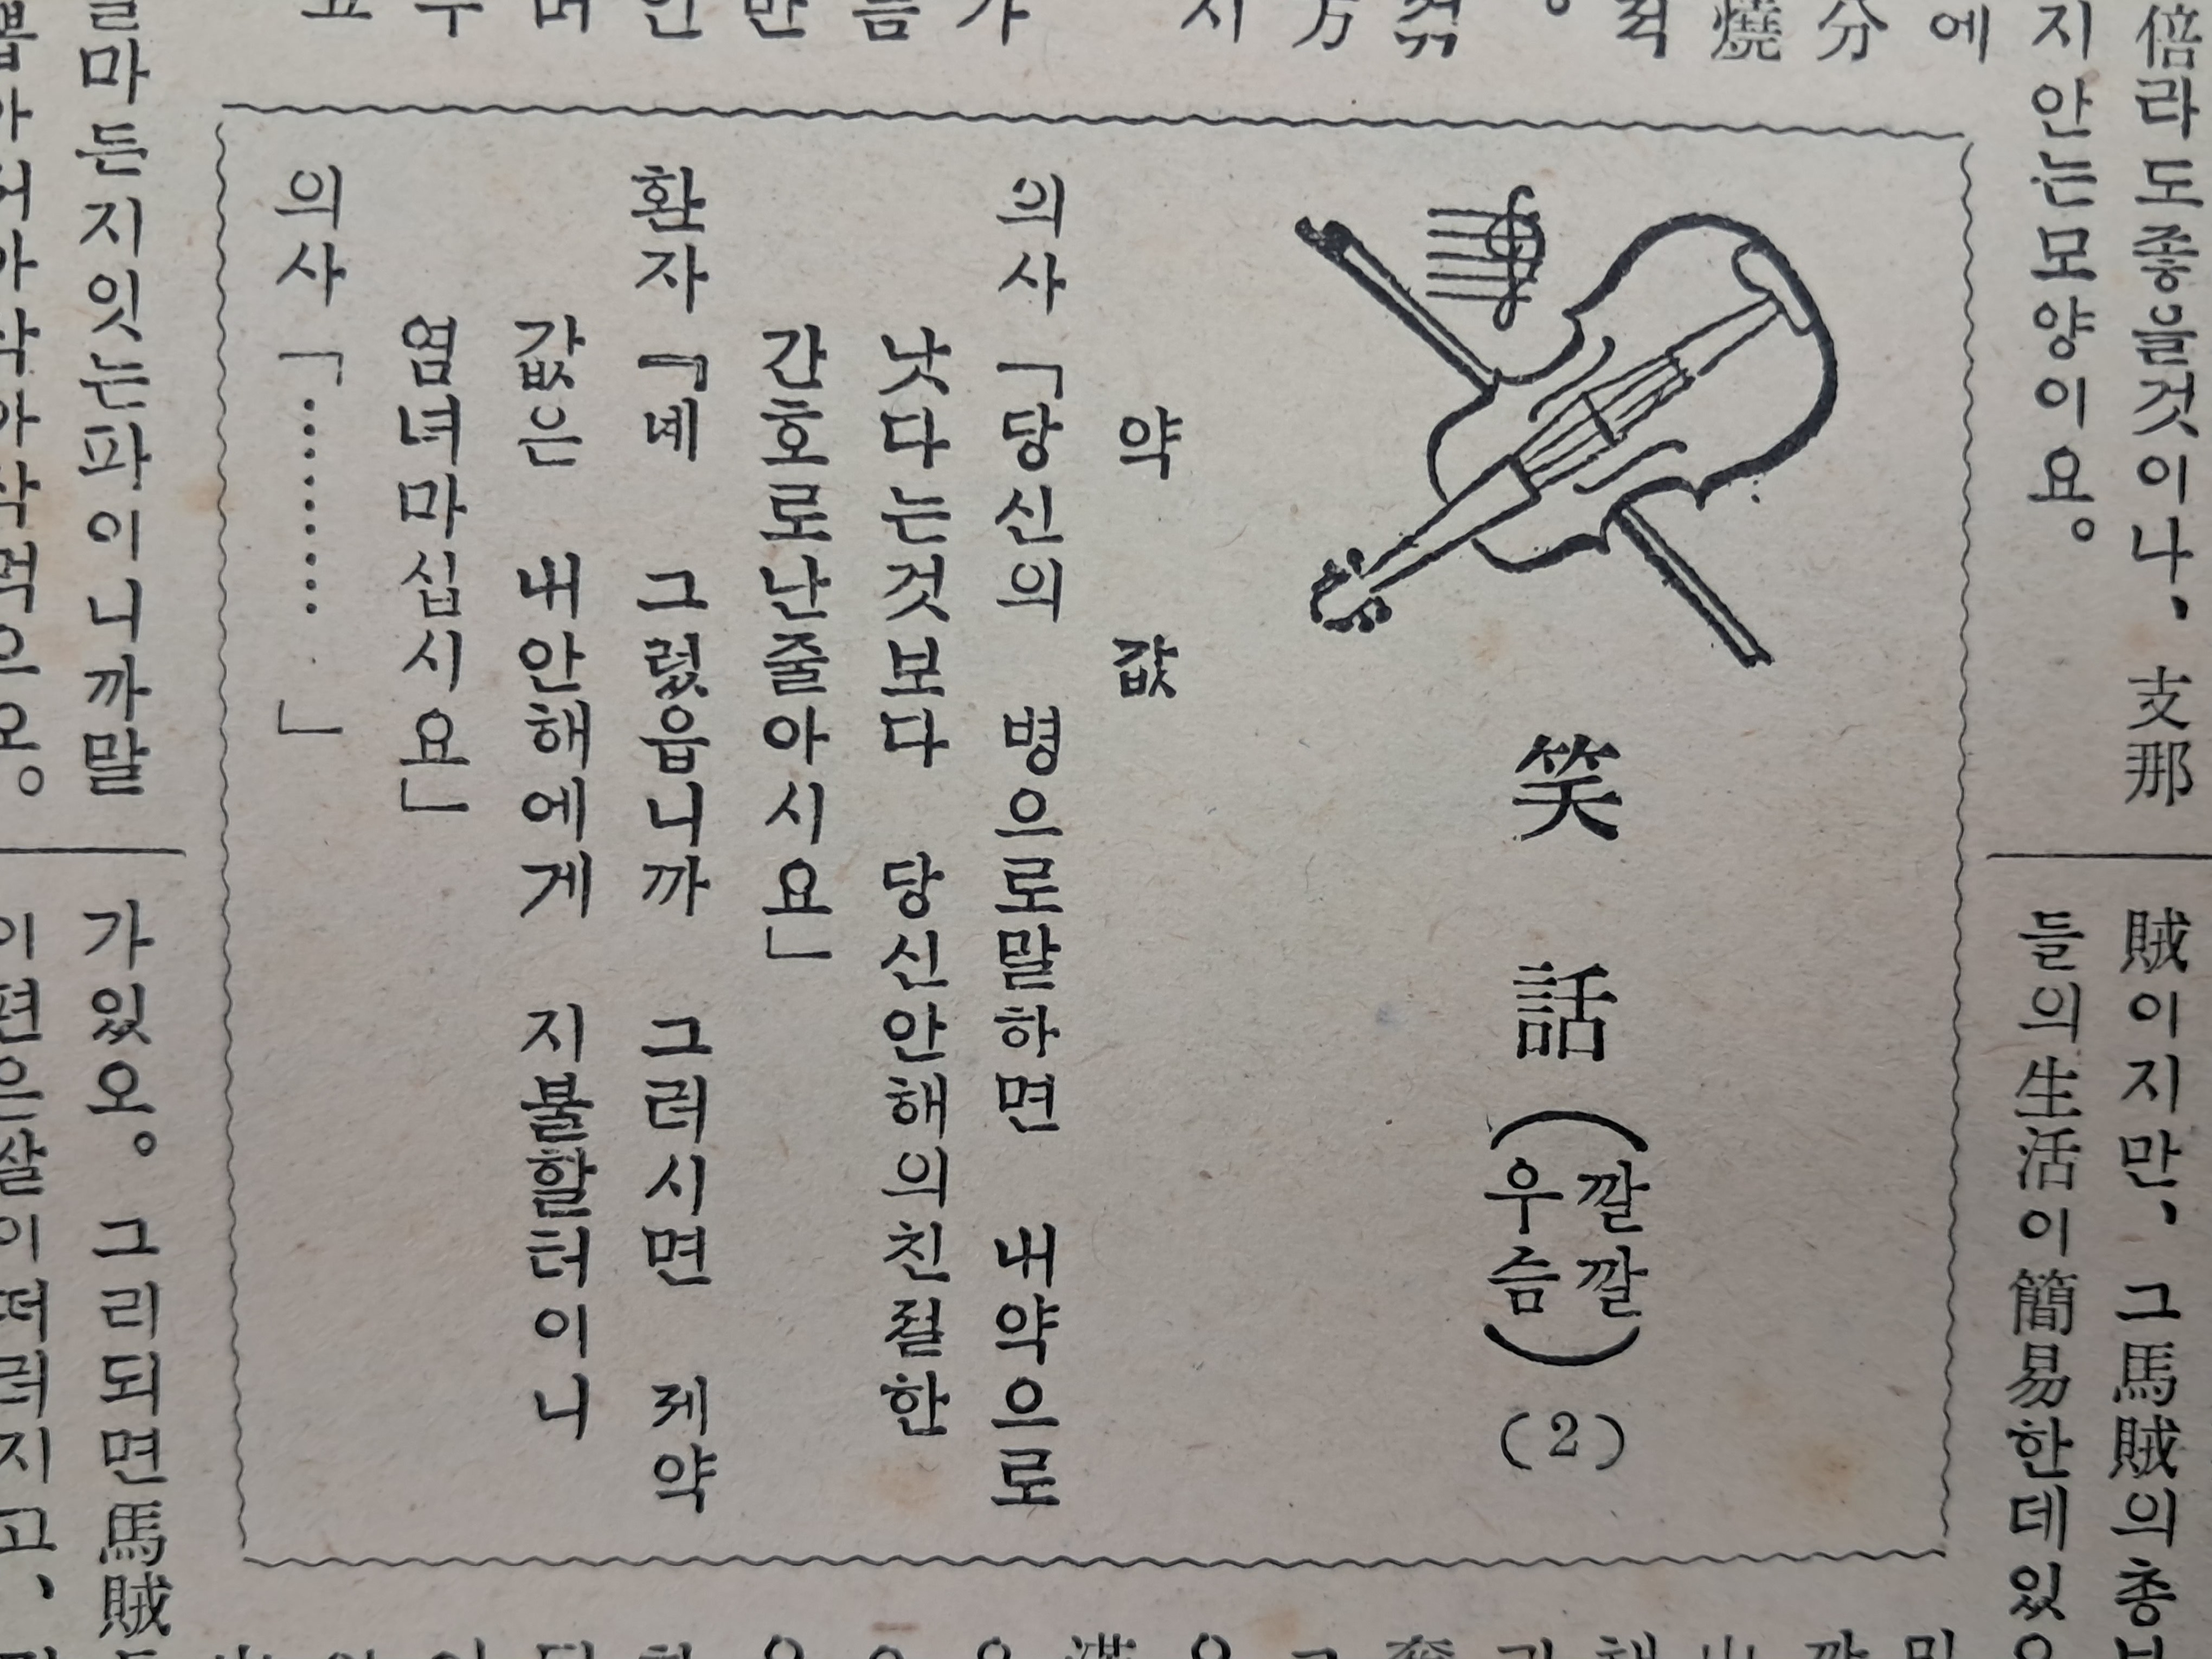 倍라도좋을것이나, 支那
지안는모양이요。
賊이지만, 그馬賊의총
들의生活이簡易한데있
笑話(깔깔우슴)(2)
약값
의사「당신의 병으로말하면 내약으로
낫다는것보다 당신안해의친절한
간호로난줄아시요」
환자『네 그렀읍니까 그러시면 제약
값은 내안해에게 지불할터이니
염녀마십시요」
의사「………」
마든지잇는파이니까말
가있오。그리되면馬賊